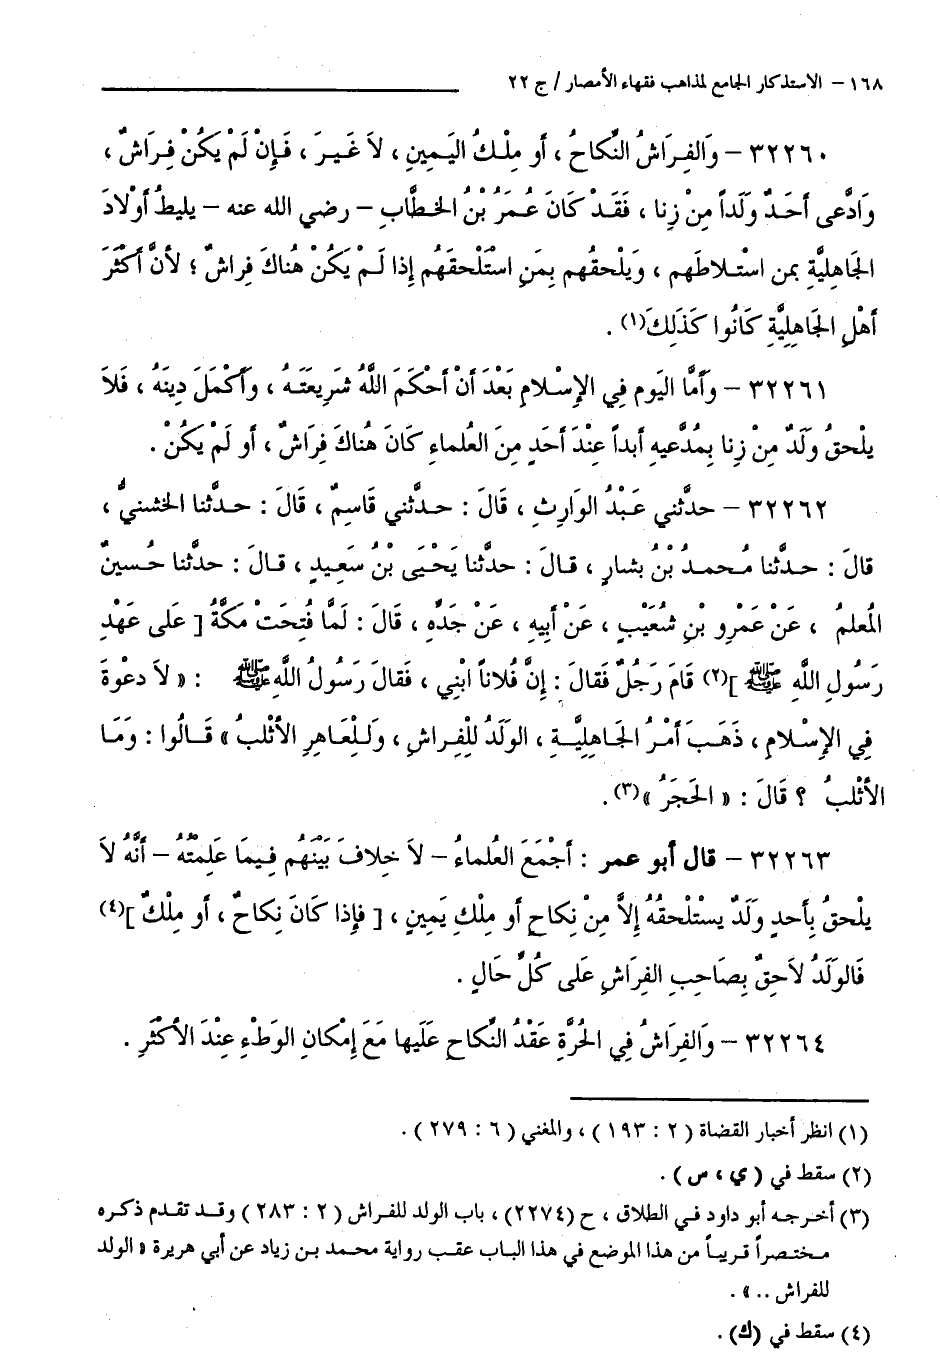 ١٦٨ – الاستذكار الجامع لمذاهب فقهاء الأمصار / ج ٢٢
٣٢٢٦٠ – وَالفِرَاشُ النِّكَاحُ ، أو مِلْكُ اليَمِينِ ، لاَ غَيرَ ، فَإِنْ لَمْ يَكُنْ فِرَاشٌ ،
وَادَّعى أحَدٌ وَلَداً مِنْ زِنا ، فَقَدْ كَانَ عُمَرُ بْنُ الخطَّابِ – رضي الله عنه – يليطُ أوْلادَ
الجَاهِليَّةِ بمن اسْتلاطَهم ، وَيلْحقُهم بِمَنِ اسْتَلْحقَهُم إذا لَمْ يَكُنْ هُناكَ فِراشٌ ؛ لأنَّ أكْثَرَ
أهْلِ الجَاهِليَّةِ كَانُوا كَذَلِكَ(١) .
٣٢٢٦١ – وَأمَّا اليَوم فِي الإِسْلامِ بَعْدَ أنْ أحْكَمَ اللَّهُ شَرِيعَتَهُ ، وَأكْمَلَ دِينَهُ ، فَلاَ
يلْحقُ وَلَدٌ مِنْ زِنا بِمُدَّعيهِ أبداً عِنْدَ أحَدٍ مِنَ العُلماءِ كَانَ هُناكَ فِرَاشٌ ، أو لَمْ يَكُنْ .
٣٢٢٦٢ – حدثَّني عَبْدُ الوَارِثِ ، قَالَ : حدثَّني قَاسِمٌ ، قَالَ : حدثَّنا الخشنيُّ ،
قالَ : حدثَّنا مُحمدُ بْنُ بشارٍ ، قالَ : حدثَّنا يَحْيَى بْنُ سَعِيدٍ ، قالَ : حدثَّنا حُسينٌ
المُعلمُ ، عَنْ عَمْرِو بْنِ شُعَيْبٍ ، عَنْ أبِيهِ ، عَنْ جَدِّهِ ، قَالَ : لَمَّا فُتِحَتْ مَكَّةُ [ عَلى عَهْدِ
رَسُولِ اللَّهِ ﷺ ](٢) قَامَ رَجُلٌ فَقالَ : إنَّ فُلاناً ابْنِي ، فَقالَ رَسُولُ اللَّهِ ﷺ : « لاَ دعْوةَ
فِي الإِسْلامِ ، ذَهَبَ أمْرُ الجَاهِليَّةِ ، الوَلَدُ لِلْفِراشِ ، وَلِلْعاهِرِ الأثْلبُ » قَالُوا : وَمَا
الأثْلبُ ؟ قَالَ : « الحَجَرُ »(٣) .
٣٢٢٦٣ – قال أبو عمر : أجْمَعَ العُلماءُ – لاَ خِلافَ بَيْنَهُم فِيمَا عَلِمْتُهُ – أنَّهُ لاَ
يلْحقُ بِأحدٍ وَلَدٌ يسْتَلْحقُهُ إلاَّ مِنْ نِكاحٍ أو مِلْكِ يَمِينٍ ، [ فإذا كَانَ نِكَاحٌ ، أو مِلْكٌ ](٤)
فَالوَلَدُ لاَحِقٌ بِصَاحِبِ الفِرَاشِ عَلى كُلِّ حَالٍ .
٣٢٢٦٤ – وَالفِرَاشُ فِي الحُرَّةِ عَقْدُ النِّكَاحِ عَلَيها مَعَ إِمْكانِ الوَطْءِ عِنْدَ الأكْثَرِ .
(١) انظر أخبار القضاة ( ٢ : ١٩٣ ) ، والمغني ( ٦ : ٢٧٩ ) .
(٢) سقط في ( ي ، س ) .
(٣) أخرجه أبو داود في الطلاق ، ح (٢٢٧٤) ، باب الولد للفراش ( ٢ : ٢٨٣ ) وقد تقدم ذكره
مختصراً قريباً من هذا الموضع في هذا الباب عقب رواية محمد بن زياد عن أبي هريرة « الولد
للفراش .. » .
(٤) سقط في (ك) .